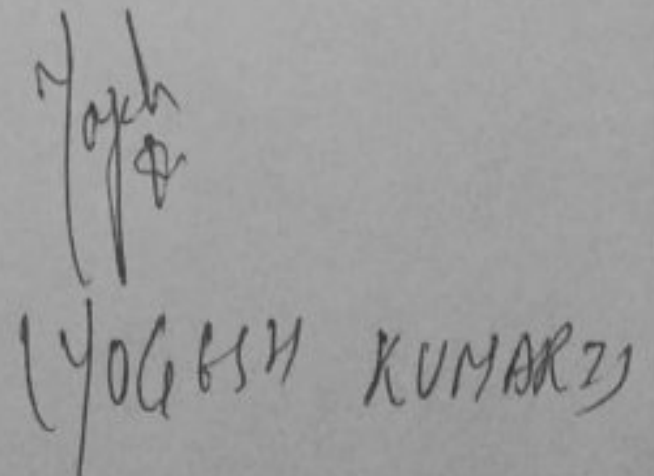 Yogesh
(YOGESH KUMAR)